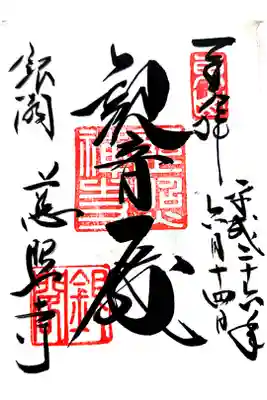 奉拝
平成二十六年
六月十四日
観音殿
銀閣 慈照寺